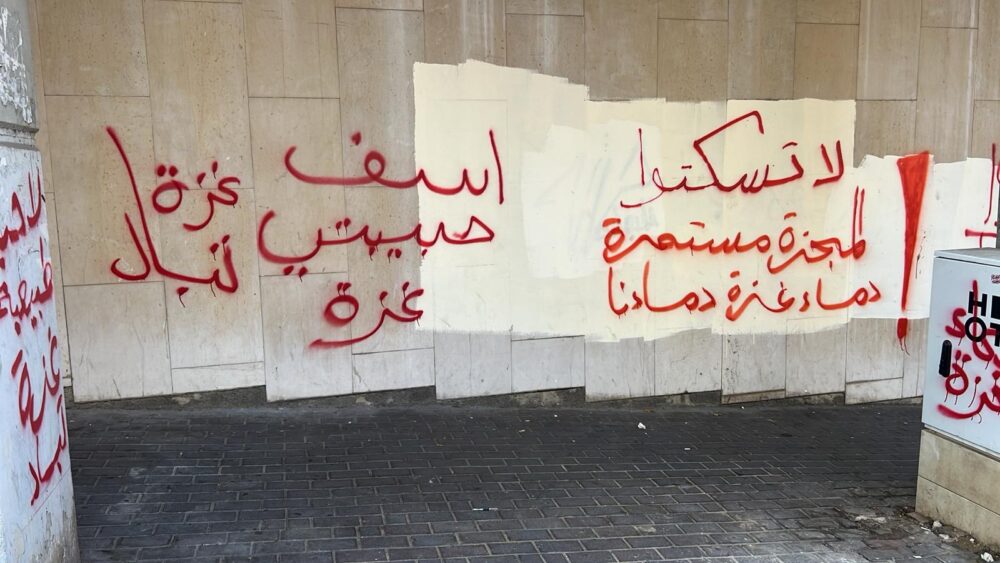 لا تسكتوا
المجزرة مستمرة
دماء غزة دماءنا
!
اسف
حبيبتي
غزة
غزة
تباد
غزة
تباد
H
OT
غزة